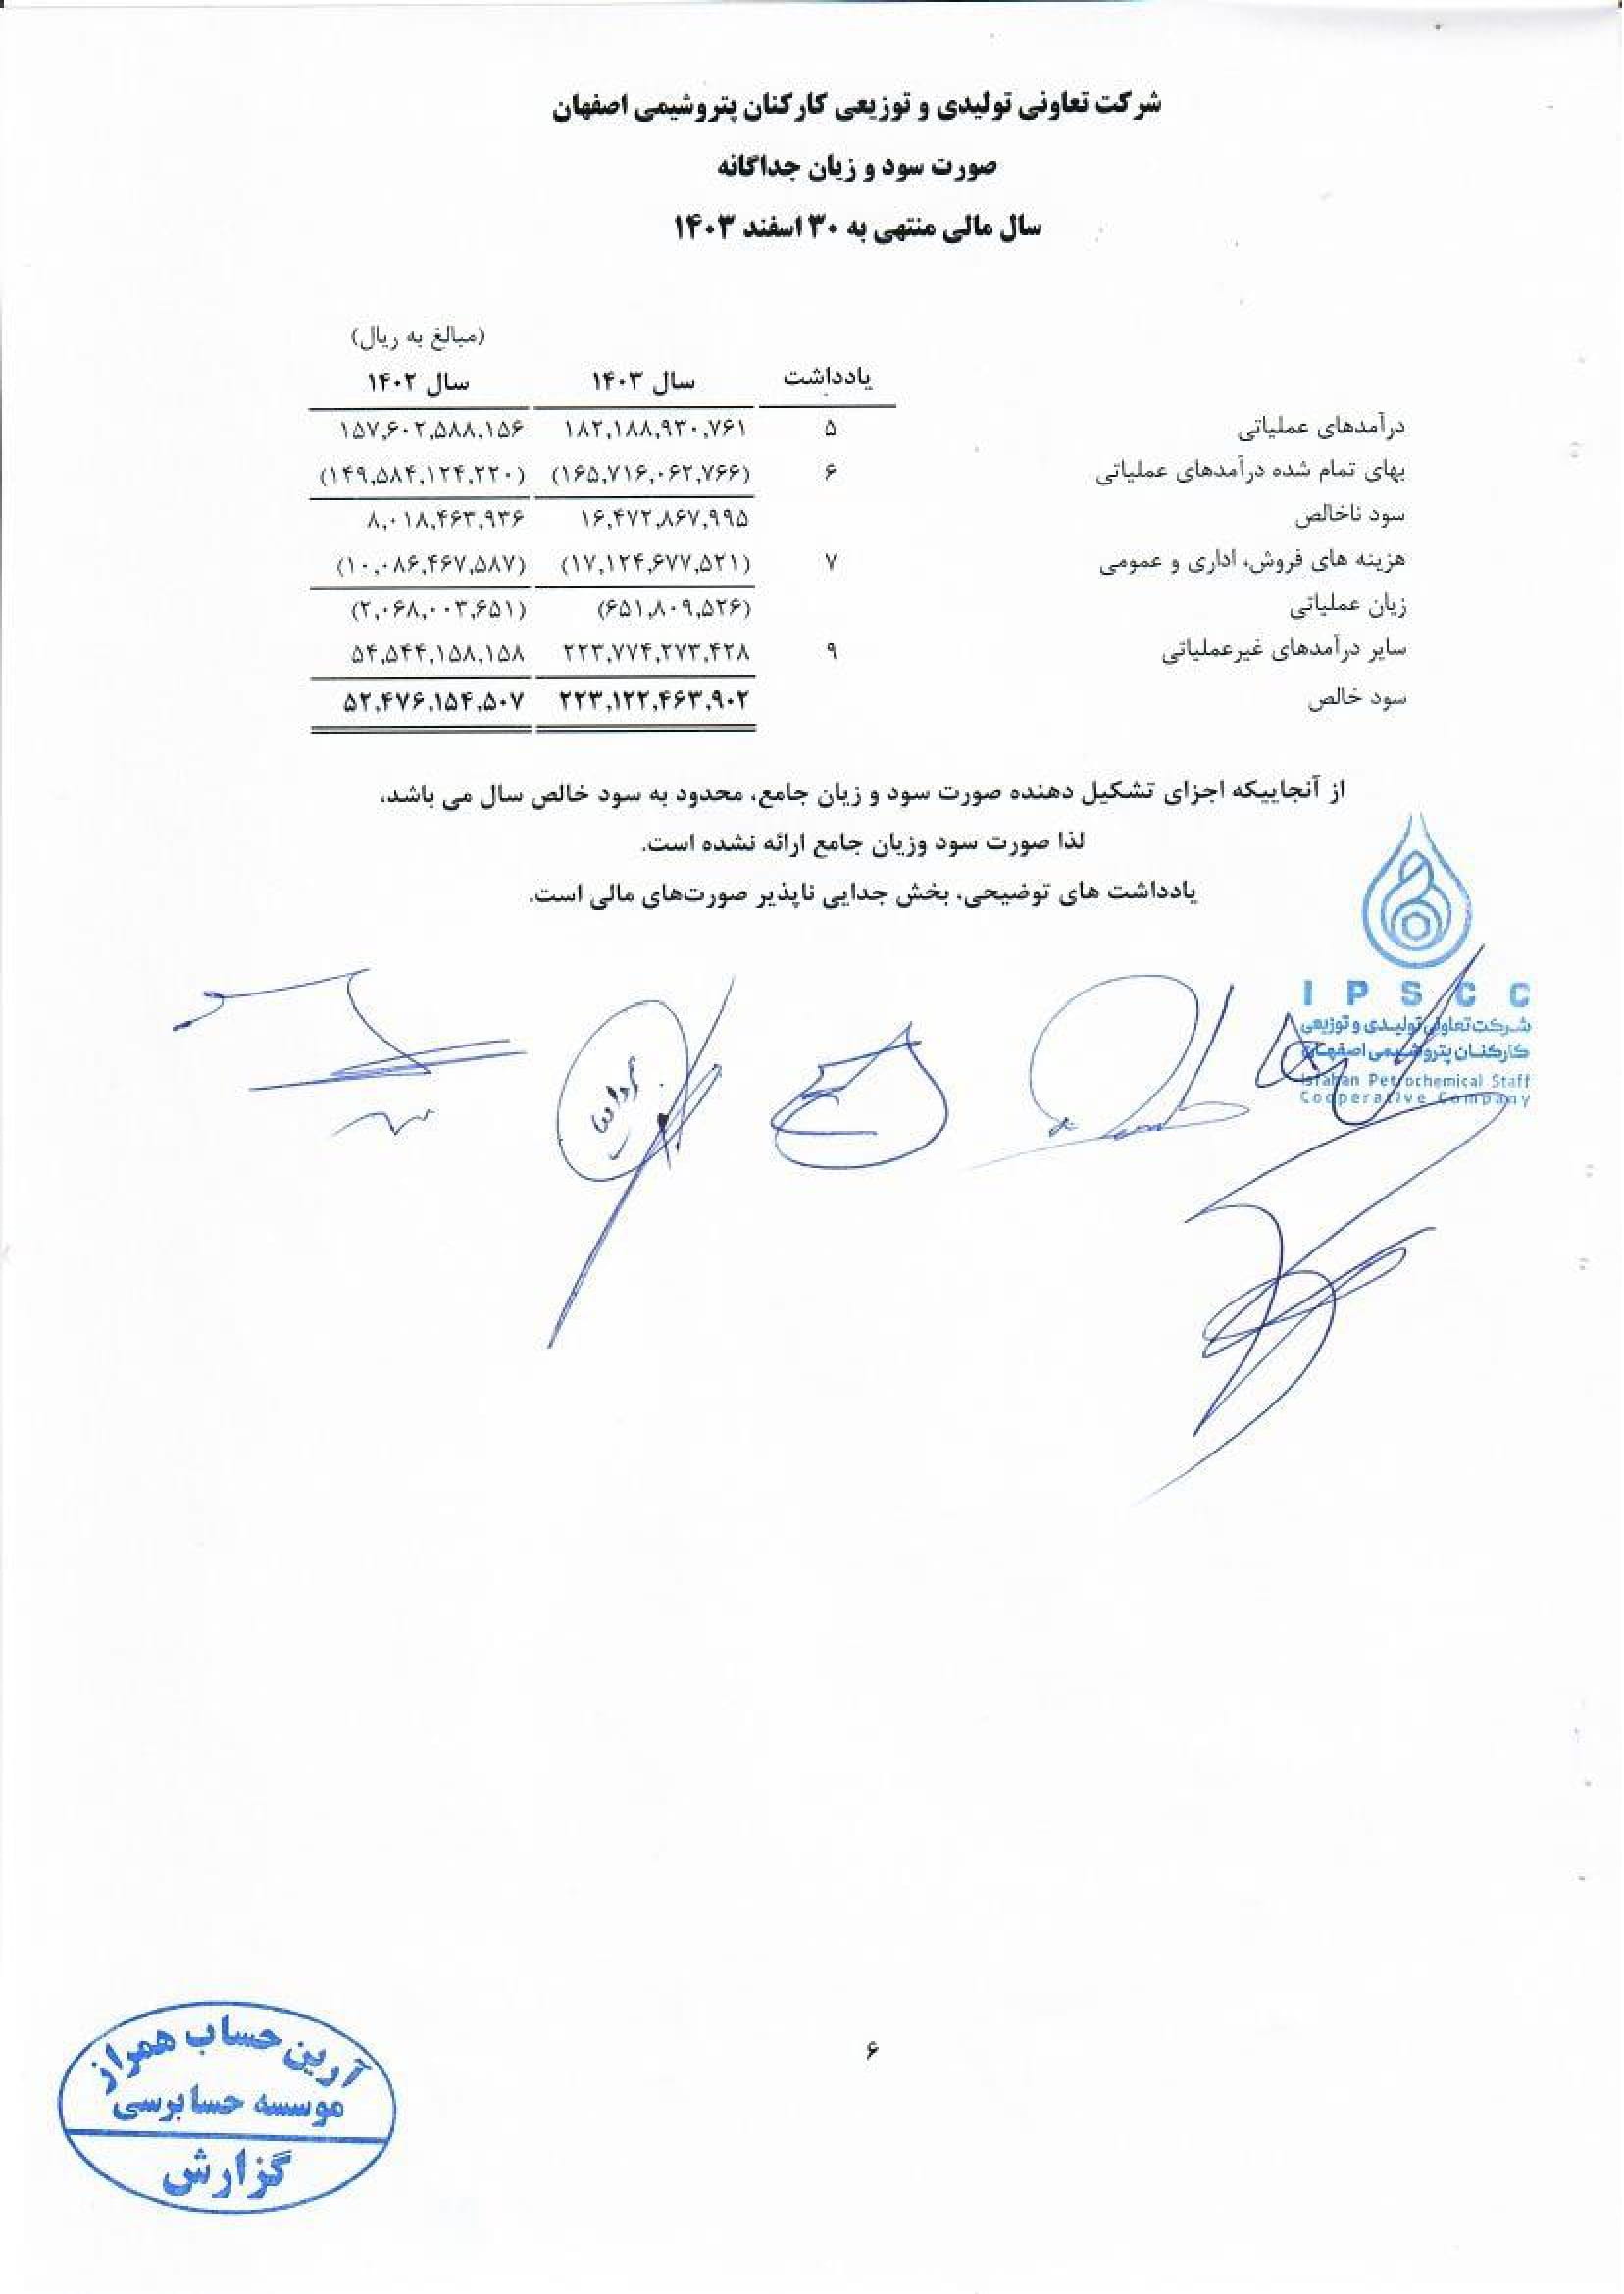 شرکت تعاونی تولیدی و توزیعی کارکنان پتروشیمی اصفهان
صورت سود و زیان جداگانه
سال مالی منتهی به ۳۰ اسفند ۱۴۰۳
(مبالغ به ریال)
یادداشت سال ۱۴۰۳ سال ۱۴۰۲
درآمدهای عملیاتی ۵ ۱۸۲,۱۸۸,۹۳۰,۷۶۱ ۱۵۷,۶۰۲,۵۸۸,۱۵۶
بهای تمام شده درآمدهای عملیاتی ۶ (۱۶۵,۷۱۶,۰۶۲,۷۶۶) (۱۴۹,۵۸۴,۱۲۴,۲۲۰)
سود ناخالص ۱۶,۴۷۲,۸۶۷,۹۹۵ ۸,۰۱۸,۴۶۳,۹۳۶
هزینه های فروش، اداری و عمومی ۷ (۱۷,۱۲۴,۶۷۷,۵۲۱) (۱۰,۰۸۶,۴۶۷,۵۸۷)
زیان عملیاتی (۶۵۱,۸۰۹,۵۲۶) (۲,۰۶۸,۰۰۳,۶۵۱)
سایر درآمدهای غیرعملیاتی ۹ ۲۲۳,۷۷۴,۲۷۳,۴۲۸ ۵۴,۵۴۴,۱۵۸,۱۵۸
سود خالص ۲۲۳,۱۲۲,۴۶۳,۹۰۲ ۵۲,۴۷۶,۱۵۴,۵۰۷
از آنجاییکه اجزای تشکیل دهنده صورت سود و زیان جامع، محدود به سود خالص سال می باشد،
لذا صورت سود وزیان جامع ارائه نشده است.
یادداشت های توضیحی، بخش جدایی ناپذیر صورت‌های مالی است.
I P S C C
شرکت تعاونی تولیدی و توزیعی
کارکنان پتروشیمی اصفهان
Isfahan Petrochemical Staff
Cooperative Company
۶
آرین حساب همراز
موسسه حسابرسی
گزارش